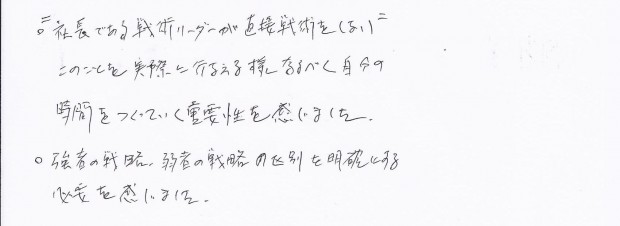 "。社長である戦術リーダーが直接戦術をしない"
このことを実際に行なえる様になるべく自分の
時間をつくっていく重要性を感じました。
○ 強者の戦略、弱者の戦略の区別を明確にする
必要を感じました。